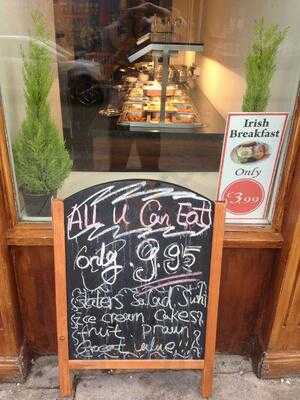 Irish
Breakfast
Only
£3.99
All U Can Eat
only 9.95
Staters Salad Sushi
ice cream Cakes
fruit prawn
Great value!!!